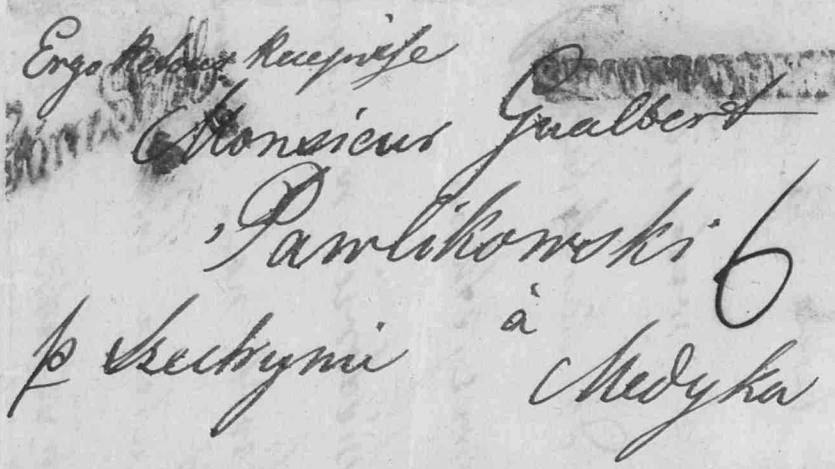 Ergo Retour Recepisse
Monsieur Gualbert
Pawlikowski 6
à
p Szechynie Medyka